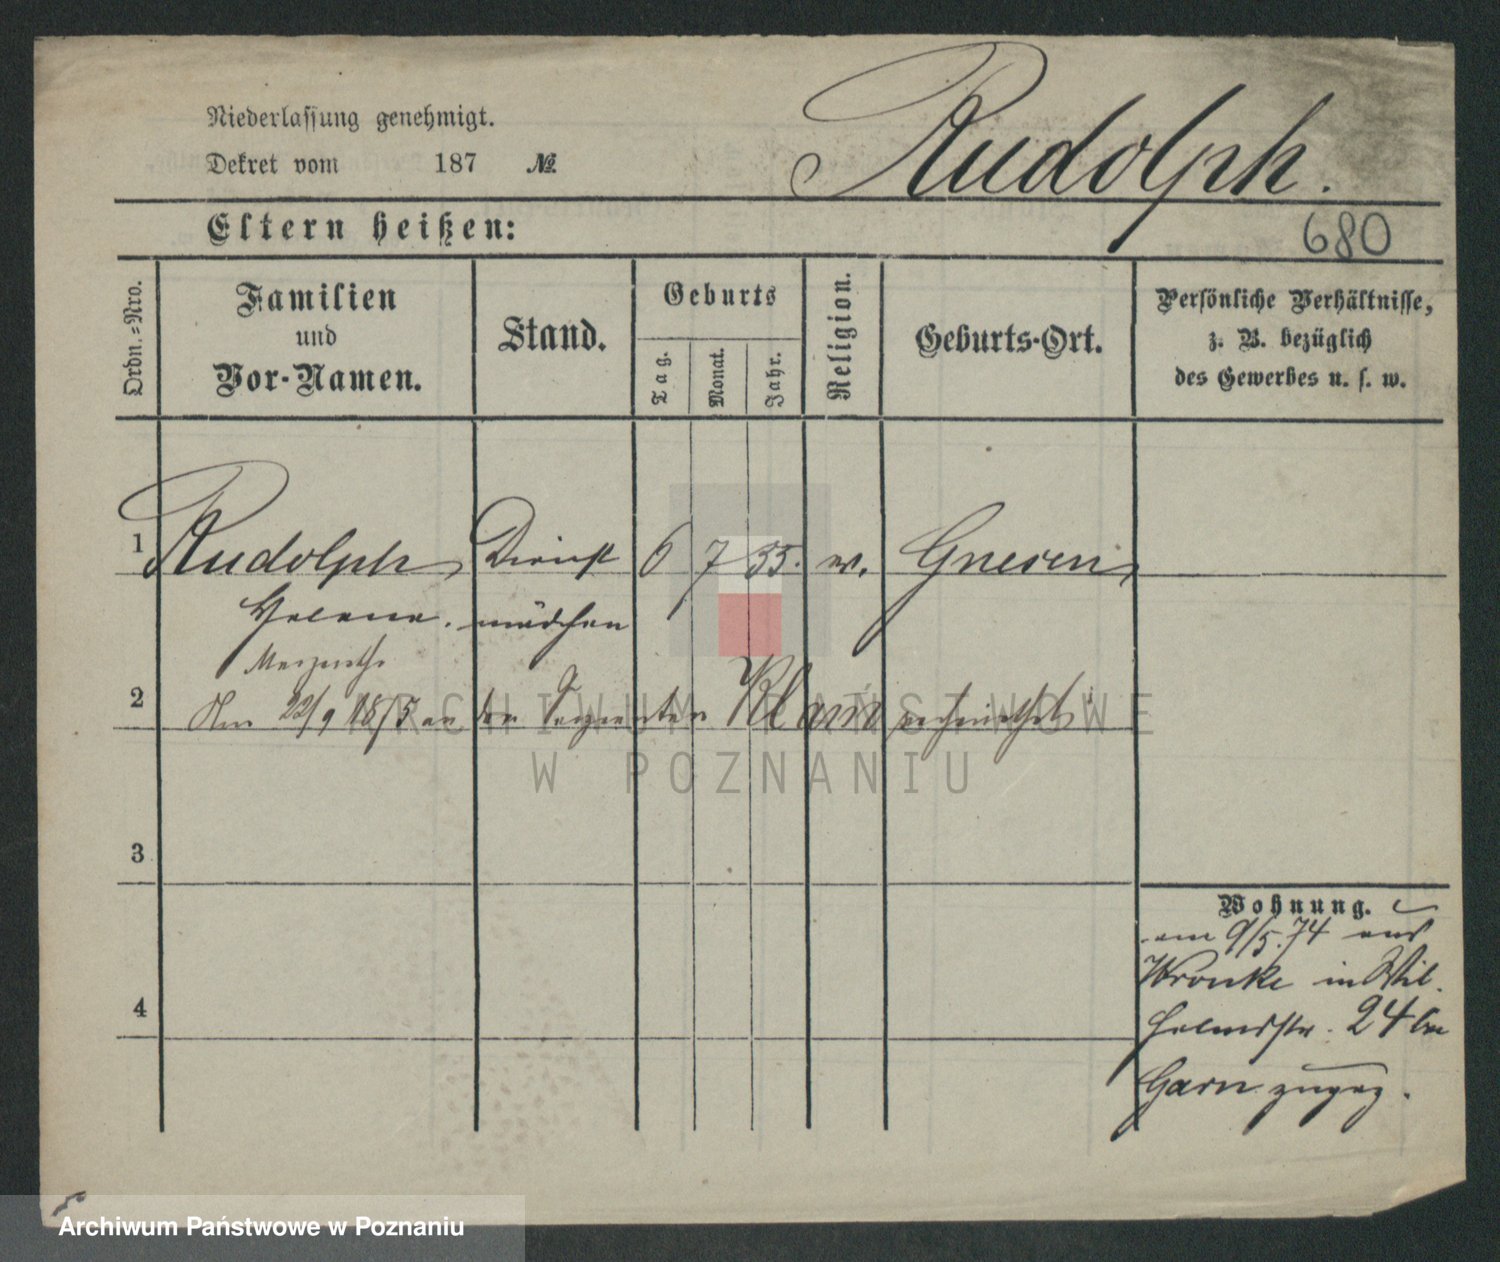 Rudolph.
Niederlassung genehmigt.
Dekret vom 187 №.
Eltern heißen:
680
Ordn.=Nro.
Familien
und
Vor-Namen.
Stand.
Geburts
Tag.
Monat.
Jahr.
Religion.
Geburts-Ort.
Persönliche Verhältnisse,
z. B. bezüglich
des Gewerbes u. s. w.
1 Rudolph Dienst 6 7 35. ev. Gnesen
Helene. mädchen
2 Am 22/9 1875 an den Klamm verheirathet
3
Wohnung.
am 9/5.74 aus
Wronke in Wil-
helmstr. 24 bei
Garn zugez.
4
ARCHIWUM PAŃSTWOWE
W POZNANIU
Archiwum Państwowe w Poznaniu